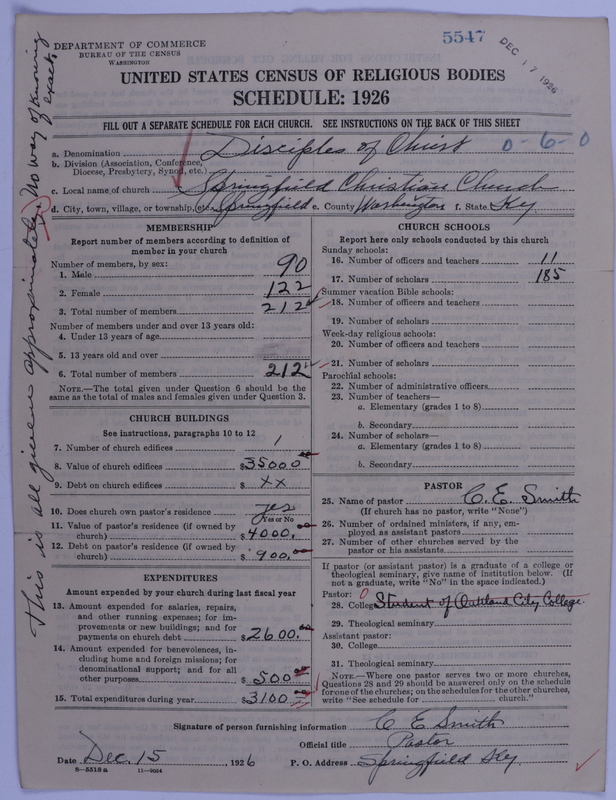 5547
DEC 17 1926
DEPARTMENT OF COMMERCE
BUREAU OF THE CENSUS
WASHINGTON
UNITED STATES CENSUS OF RELIGIOUS BODIES
SCHEDULE: 1926
FILL OUT A SEPARATE SCHEDULE FOR EACH CHURCH. SEE INSTRUCTIONS ON THE BACK OF THIS SHEET
0-6-0
a. Denomination Disciples of Christ
b. Division (Association, Conference, Diocese, Presbytery, Synod, etc.)
c. Local name of church Springfield Christian Church
d. City, town, village, or township, etc. Springfield e. County Washington f. State Ky
This is all given approximately. No way of knowing exact.
MEMBERSHIP
Report number of members according to definition of
member in your church
Number of members, by sex:
1. Male 90
2. Female 122
3. Total number of members 212
Number of members under and over 13 years old:
4. Under 13 years of age
5. 13 years old and over
6. Total number of members 212
NOTE.—The total given under Question 6 should be the
same as the total of males and females given under Question 3.
CHURCH BUILDINGS
See instructions, paragraphs 10 to 12
7. Number of church edifices 1
8. Value of church edifices $35000
9. Debt on church edifices $ xx
10. Does church own pastor's residence? yes
Yes or No
11. Value of pastor's residence (if owned by
church) $4000.
12. Debt on pastor's residence (if owned by
church) $900.
EXPENDITURES
Amount expended by your church during last fiscal year
13. Amount expended for salaries, repairs,
and other running expenses; for im-
provements or new buildings; and for
payments on church debt $2600.
14. Amount expended for benevolences, in-
cluding home and foreign missions; for
denominational support; and for all
other purposes $500
15. Total expenditures during year $3100
CHURCH SCHOOLS
Report here only schools conducted by this church
Sunday schools:
16. Number of officers and teachers 11
17. Number of scholars 185
Summer vacation Bible schools:
18. Number of officers and teachers
19. Number of scholars
Week-day religious schools:
20. Number of officers and teachers
21. Number of scholars
Parochial schools:
22. Number of administrative officers
23. Number of teachers—
a. Elementary (grades 1 to 8)
b. Secondary
24. Number of scholars—
a. Elementary (grades 1 to 8)
b. Secondary
PASTOR
25. Name of pastor C. E. Smith
(If church has no pastor, write "None")
26. Number of ordained ministers, if any, em-
ployed as assistant pastors
27. Number of other churches served by the
pastor or his assistants
If pastor (or assistant pastor) is a graduate of a college or
theological seminary, give name of institution below. (If
not a graduate, write "No" in the space indicated.)
Pastor: 0
28. College Student of Oakland City College
29. Theological seminary
Assistant pastor:
30. College
31. Theological seminary
NOTE.—Where one pastor serves two or more churches,
Questions 28 and 29 should be answered only on the schedule
for one of the churches; on the schedules for the other churches,
write "See schedule for church."
Signature of person furnishing information C E Smith
Official title Pastor
Date Dec. 15, 1926 P. O. Address Springfield Ky
8—5518 a 11—9034